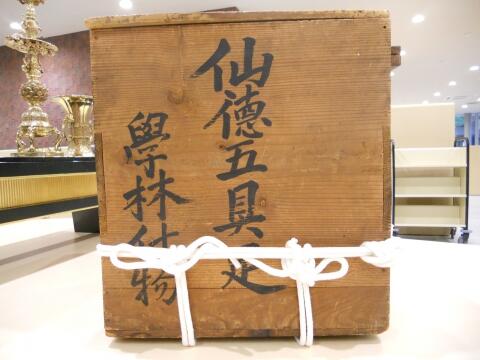 仙德五具足
學林什物